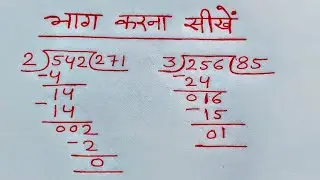 भाग करना सीखें
2)542(271
-4
14
-14
002
-2
0
3)256(85
-24
016
-15
01